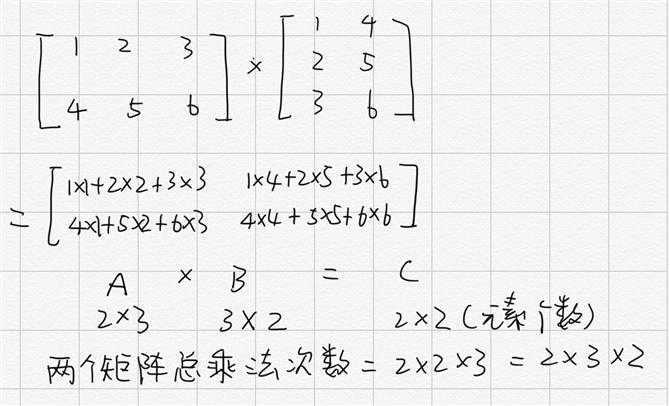 [1 2 3] × [1 4]
[4 5 6] [2 5]
[3 6]
= [1×1+2×2+3×3 1×4+2×5+3×6]
[4×1+5×2+6×3 4×4+5×5+6×6]
A × B = C
2×3 3×2 2×2(元素个数)
两个矩阵总乘法次数 = 2×2×3 = 2×3×2